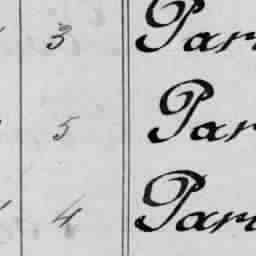 3 Par
5 Par
4 Par